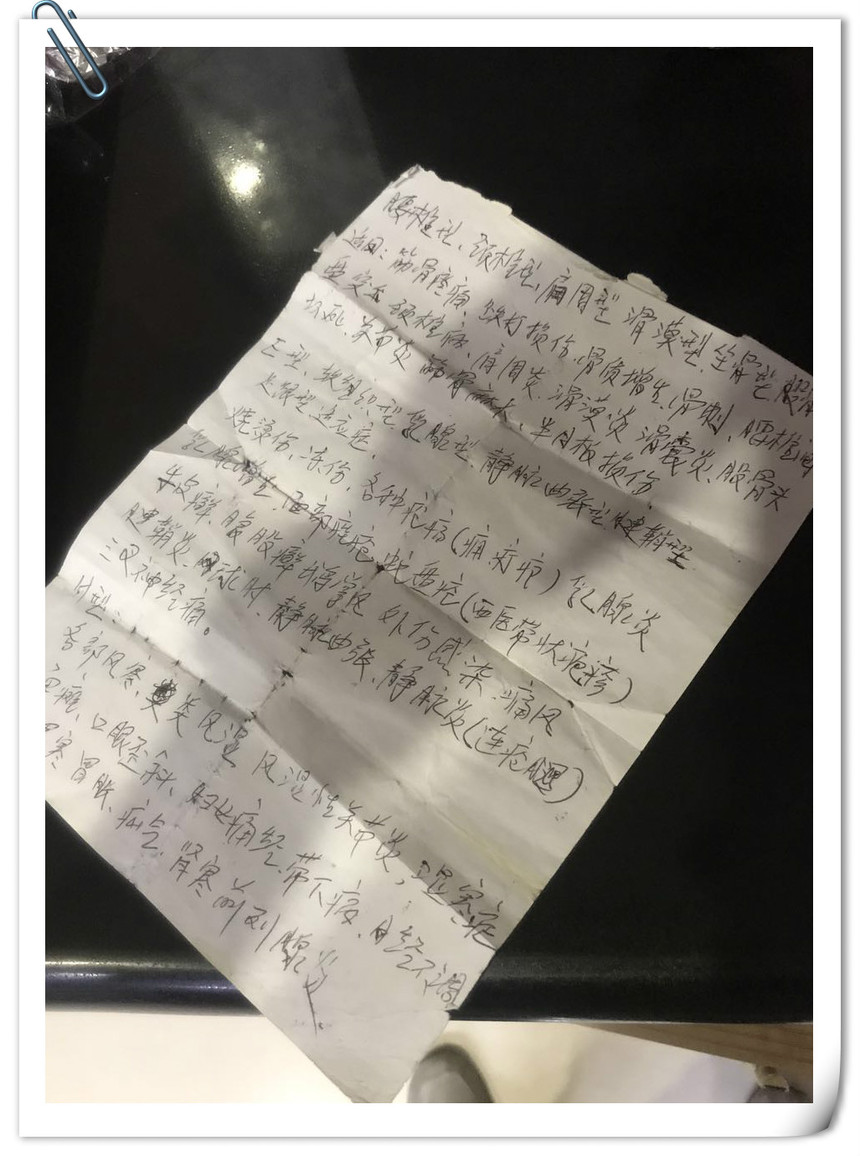 腰椎型、颈椎型、肩周型 滑漠型、坐骨型
适用：筋骨疼痛、跌打损伤、骨质增生、骨刺、腰椎间
盘突出 颈椎病、肩周炎、滑漠炎 滑囊炎、股骨头
坏死、关节炎 筋骨麻木、半月板损伤、
三型、软组织型 乳腺型、静脉曲张型 腱鞘型
适应症、
烧烫伤、冻伤、各种疮疡（ ）乳腺炎
乳腺增生、面部痤疮 蛇盘疮（西医带状疱疹）
牛皮癣、腹股癣 外伤感染、痛风
腱鞘炎、网球肘、静脉曲张、静脉炎（连疮腿）
三叉神经痛。
各部风寒、类风湿 风湿性关节炎，湿寒症
口眼歪斜、妇女痛经、带下病、月经不调
寒胃胀、疝气、肾寒 前列腺炎、